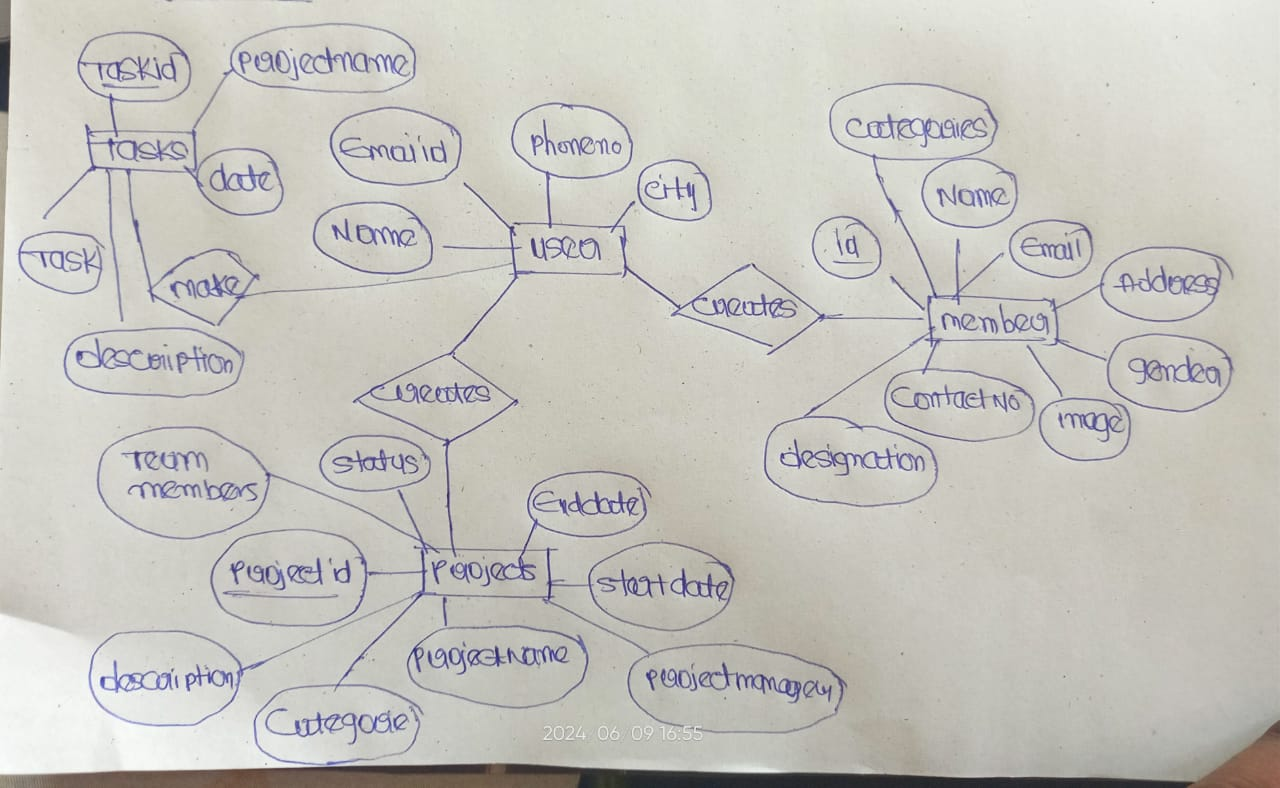 Taskid
Projectname
Tasks
date
Task
make
description
Emailid
Phoneno
city
Name
user
creates
categories
Name
Id
Email
Address
member
gender
ContactNo
image
designation
creates
Team
members
status
Enddate
Projectid
Projects
startdate
description
ProjectName
Projectmanager
Categorie
2024 06 09 16:55